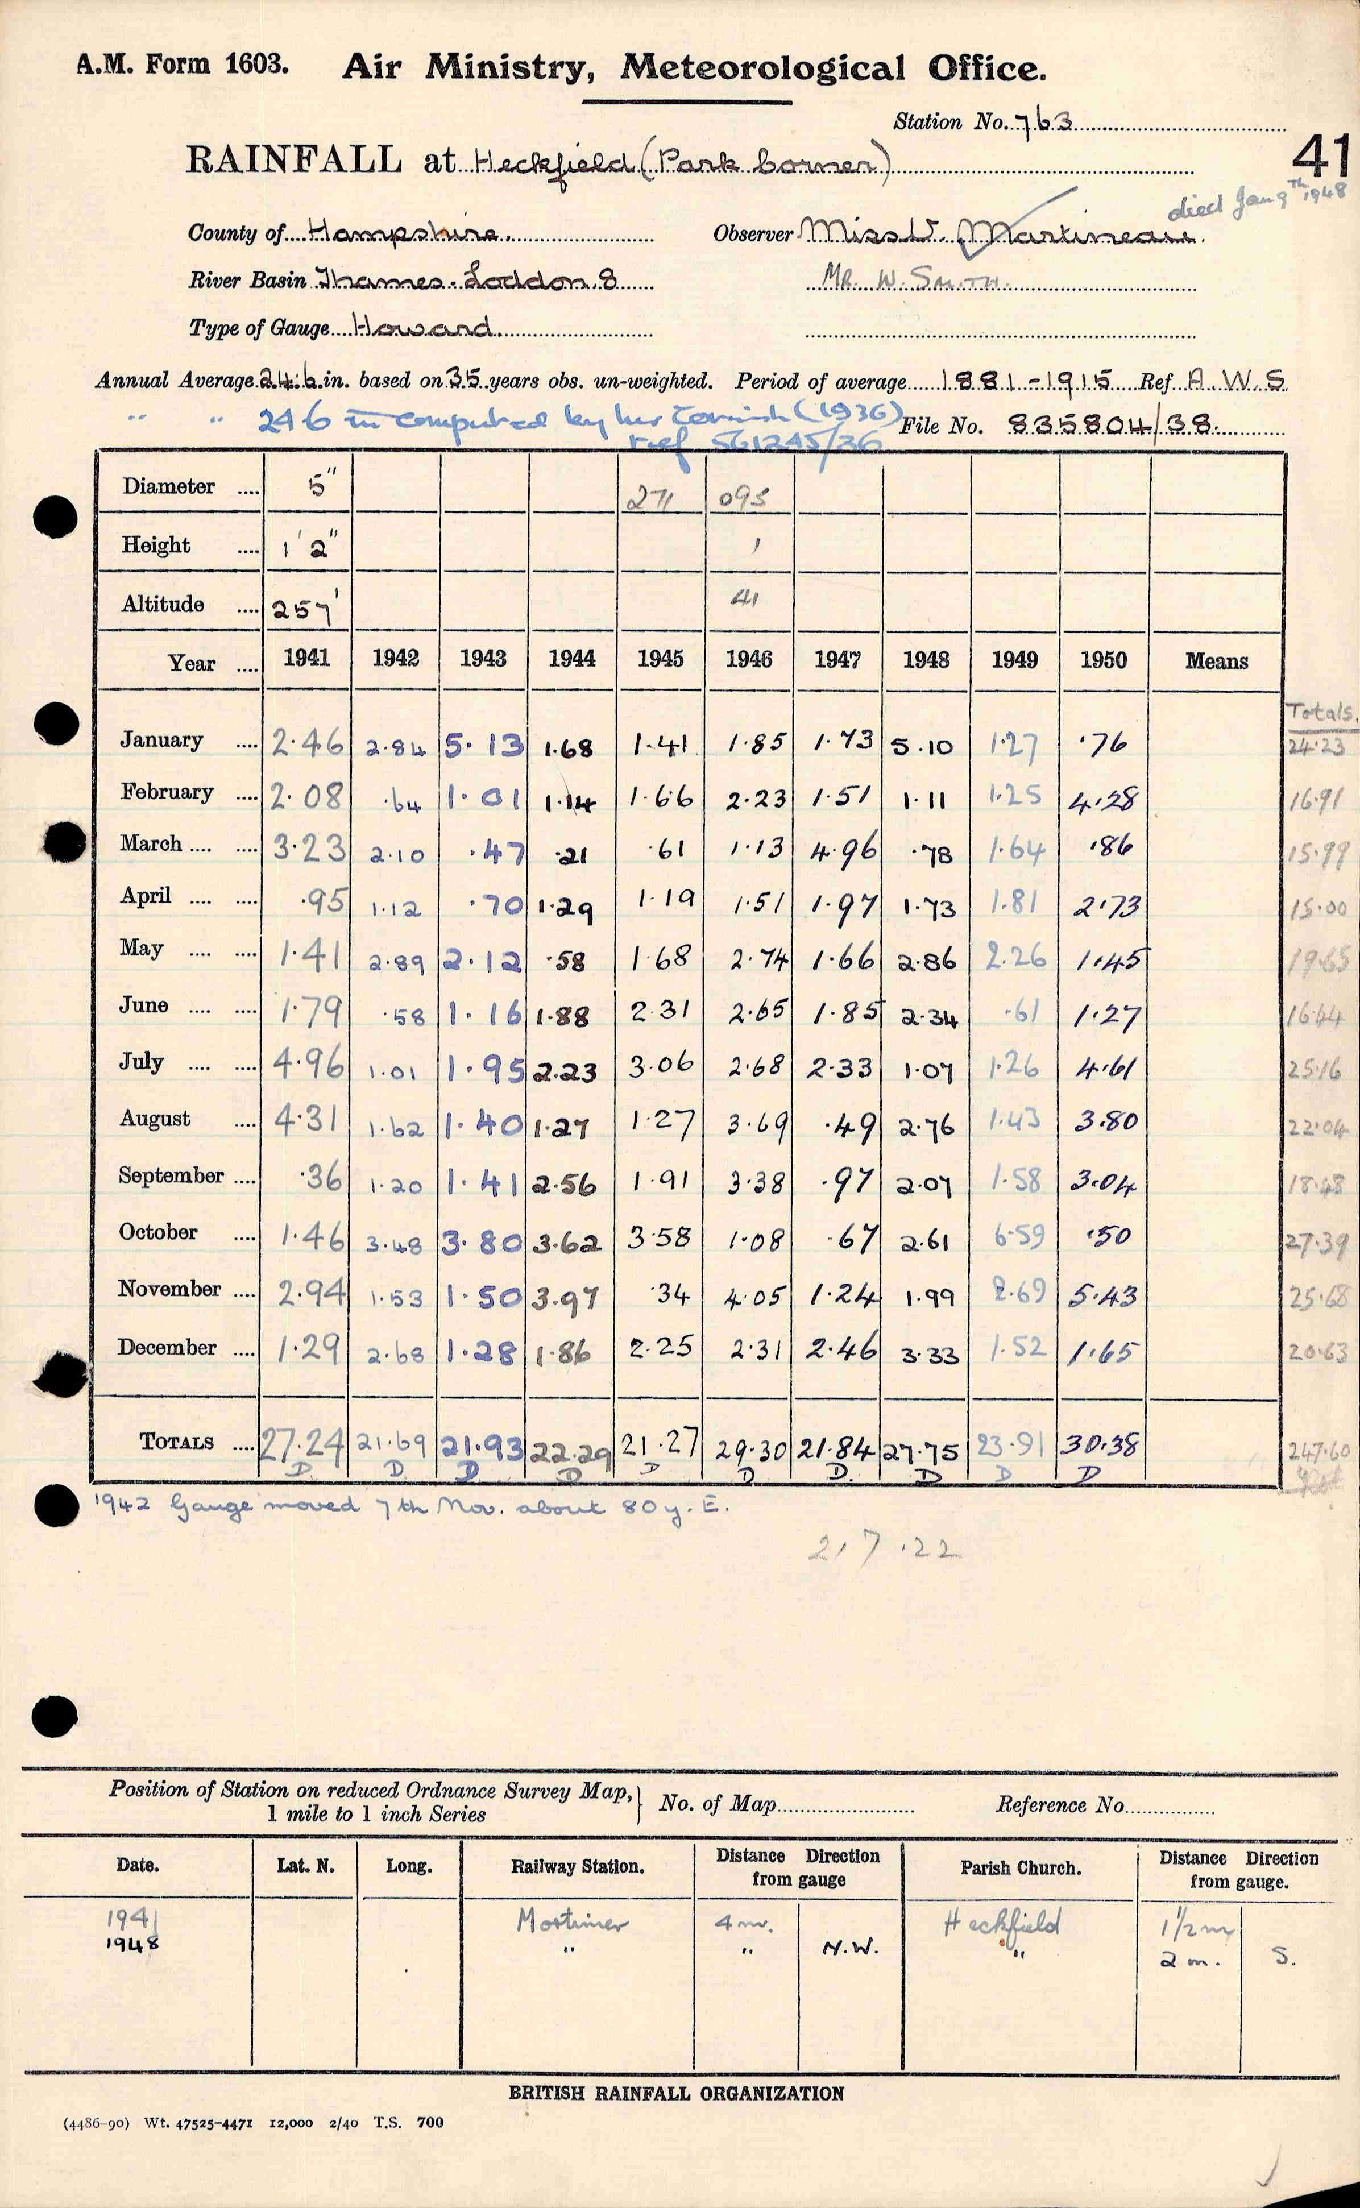 A.M. Form 1603. Air Ministry, Meteorological Office.
Station No. 763
41
RAINFALL at Heckfield (Park Corner)
died Jan 9th 1948
County of Hampshire. Observer Miss V. Martineau.
River Basin Thames. Loddon. 8 MR. W. SMITH.
Type of Gauge Howard
Annual Average 24.6 in. based on 35 years obs. un-weighted. Period of average 1881-1915 Ref A.W.S
" " 24.6 in computed by Mr Cornish (1936) File No. 835804/38.
ref 561245/36
Diameter .... 5" 271 095
Height .... 1' 2" 1
Altitude .... 257' 41
Year .... 1941 1942 1943 1944 1945 1946 1947 1948 1949 1950 Means
Totals.
January .... 2.46 2.84 5.13 1.68 1.41 1.85 1.73 5.10 1.27 .76 24.23
February .... 2.08 .64 1.01 1.14 1.66 2.23 1.51 1.11 1.25 4.28 16.91
March .... .... 3.23 2.10 .47 .21 .61 1.13 4.96 .78 1.64 .86 15.99
April .... .... .95 1.12 .70 1.29 1.19 1.51 1.97 1.73 1.81 2.73 15.00
May .... .... 1.41 2.89 2.12 .58 1.68 2.74 1.66 2.86 2.26 1.45 19.65
June .... .... 1.79 .58 1.16 1.88 2.31 2.65 1.85 2.34 .61 1.27 16.44
July .... .... 4.96 1.01 1.95 2.23 3.06 2.68 2.33 1.07 1.26 4.61 25.16
August .... 4.31 1.62 1.40 1.27 1.27 3.69 .49 2.76 1.43 3.80 22.04
September .... .36 1.20 1.41 2.56 1.91 3.38 .97 2.07 1.58 3.04 18.48
October .... 1.46 3.48 3.80 3.62 3.58 1.08 .67 2.61 6.59 .50 27.39
November .... 2.94 1.53 1.50 3.97 .34 4.05 1.24 1.99 2.69 5.43 25.68
December .... 1.29 2.68 1.28 1.86 2.25 2.31 2.46 3.33 1.52 1.65 20.63
TOTALS .... 27.24 21.69 21.93 22.29 21.27 29.30 21.84 27.75 23.91 30.38 247.60
D D D D D D D. D D D
1942 Gauge moved 7th Nov. about 80 y. E.
2.7.22
Position of Station on reduced Ordnance Survey Map, 1 mile to 1 inch Series } No. of Map Reference No
Date. Lat. N. Long. Railway Station. Distance Direction from gauge Parish Church. Distance Direction from gauge.
1941 Mortimer 4 m. Heckfield 1 1/2 m
1948 " " N.W. " 2 m. S.
BRITISH RAINFALL ORGANIZATION
(4486-90) Wt. 47525-4471 12,000 2/40 T.S. 700